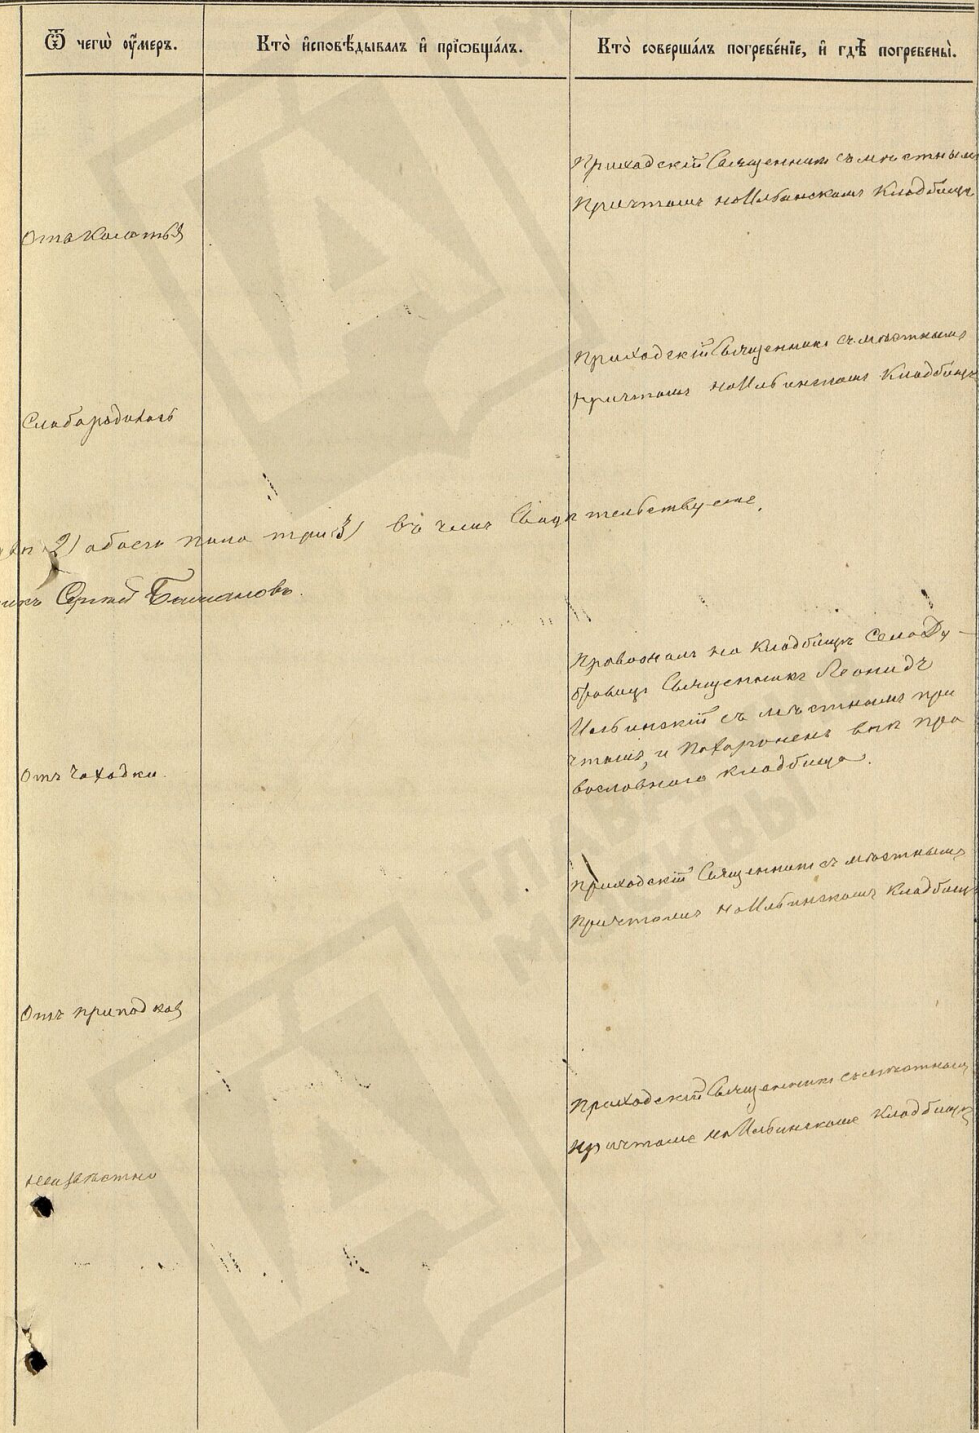 Ѿ чегѡ̀ ᲂу҆́меръ.
Кто̀ и҆сповѣ́дывалъ и҆ прїѡбща́лъ.
Кто̀ соверша́лъ погребе́нїе, и҆ гдѣ̀ погребены̀.
Приходскій Священникъ съ мѣстнымъ
Причтомъ на Ильинскомъ Кладбищѣ
Отъ Колотья
Приходскій Священникъ съ мѣстнымъ
причтомъ на Ильинскомъ Кладбищѣ
Слабородиласъ
2) обоего пола три 3) въ чемъ Свидѣтельствуетъ,
Сергій
Провожалъ на Кладбище Села Ду-
бровицъ Священникъ Леонидъ
Ильинскій съ мѣстнымъ при
чтомъ, и Похороненъ внѣ пра
вославнаго кладбища.
Отъ Чахотки
Приходскій Священникъ съ мѣстнымъ
Причтомъ на Ильинскомъ Кладбищѣ
Отъ припадковъ
Приходскій Священникъ съ мѣстнымъ
Причтомъ на Ильинскомъ Кладбищѣ
Неизвѣстно
ГЛАВ
МОСКВЫ